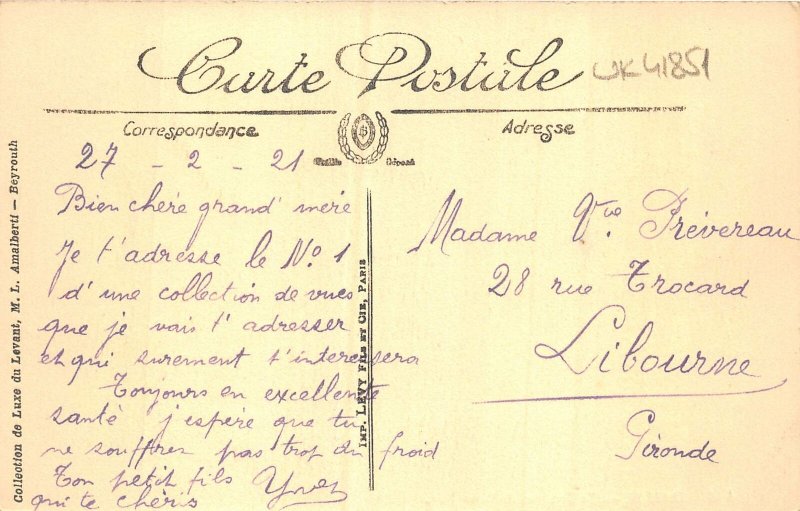 Carte Postale
WK41851
Correspondance
Adresse
27 - 2 - 21
Bien chère grand' mère
Je t'adresse le No. 1
d'une collection de vues
que je vais t'adresser
et qui surement t'interessera
Toujours en excellente
santé j'espère que tu
ne souffres pas trop du froid
Ton petit fils Yves
qui te chéris
Madame Vve. Prévereau
28 rue Trocard
Libourne
Gironde
Collection de Luxe du Levant, M. L. Amalberti — Beyrouth
IMP. LEVY FILS ET CIE, PARIS
Déposé